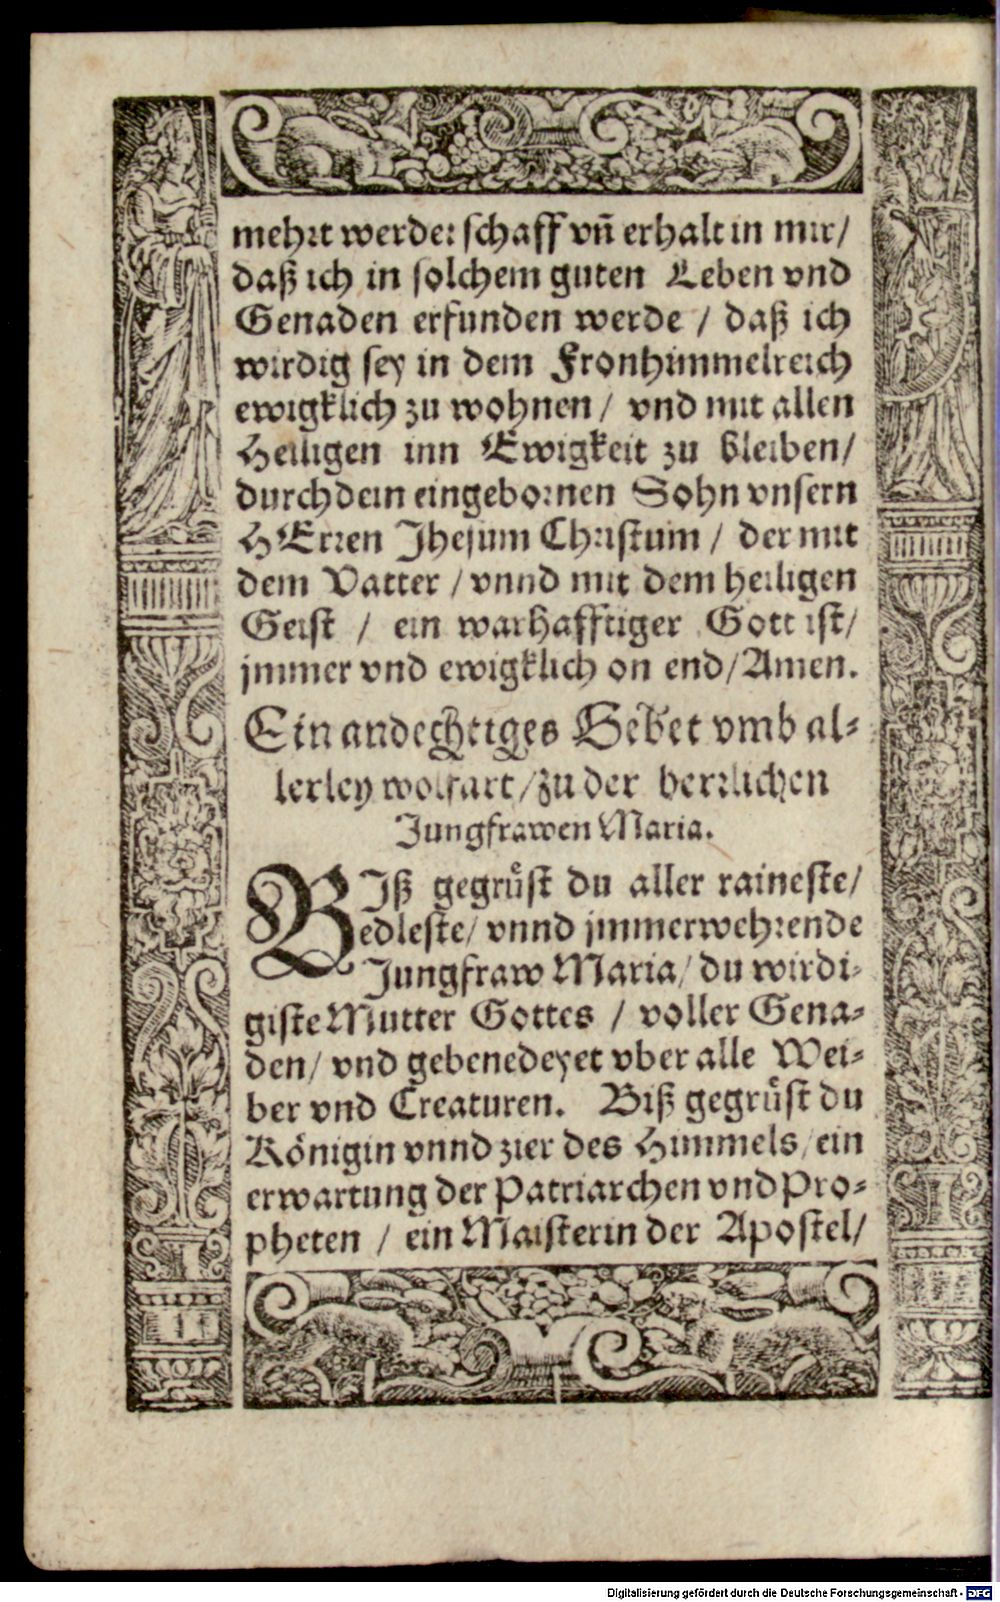 mehrt werde: schaff vñ erhalt in mir/
daß ich in solchem guten Leben vnd
Genaden erfunden werde / daß ich
wirdig sey in dem Fronhimmelreich
ewigklich zu wohnen / vnd mit allen
Heiligen inn Ewigkeit zu bleiben/
durch dein eingebornen Sohn vnsern
HErren Jhesum Christum / der mit
dem Vatter / vnnd mit dem heiligen
Geist / ein warhafftiger Gott ist/
jmmer vnd ewigklich on end/Amen.
Ein andechtiges Gebet vmb al-
lerley wolfart/zu der herrlichen
Jungfrawen Maria.
BJß gegrüst du aller raineste/
edleste/ vnnd jmmerwehrende
Jungfraw Maria/ du wirdi-
giste Mutter Gottes / voller Gena-
den/ vnd gebenedeyet vber alle Wei-
ber vnd Creaturen. Biß gegrüst du
Königin vnnd zier des Himmels/ein
erwartung der Patriarchen vnd Pro-
pheten / ein Maisterin der Apostel/
Digitalisierung gefördert durch die Deutsche Forschungsgemeinschaft - DFG